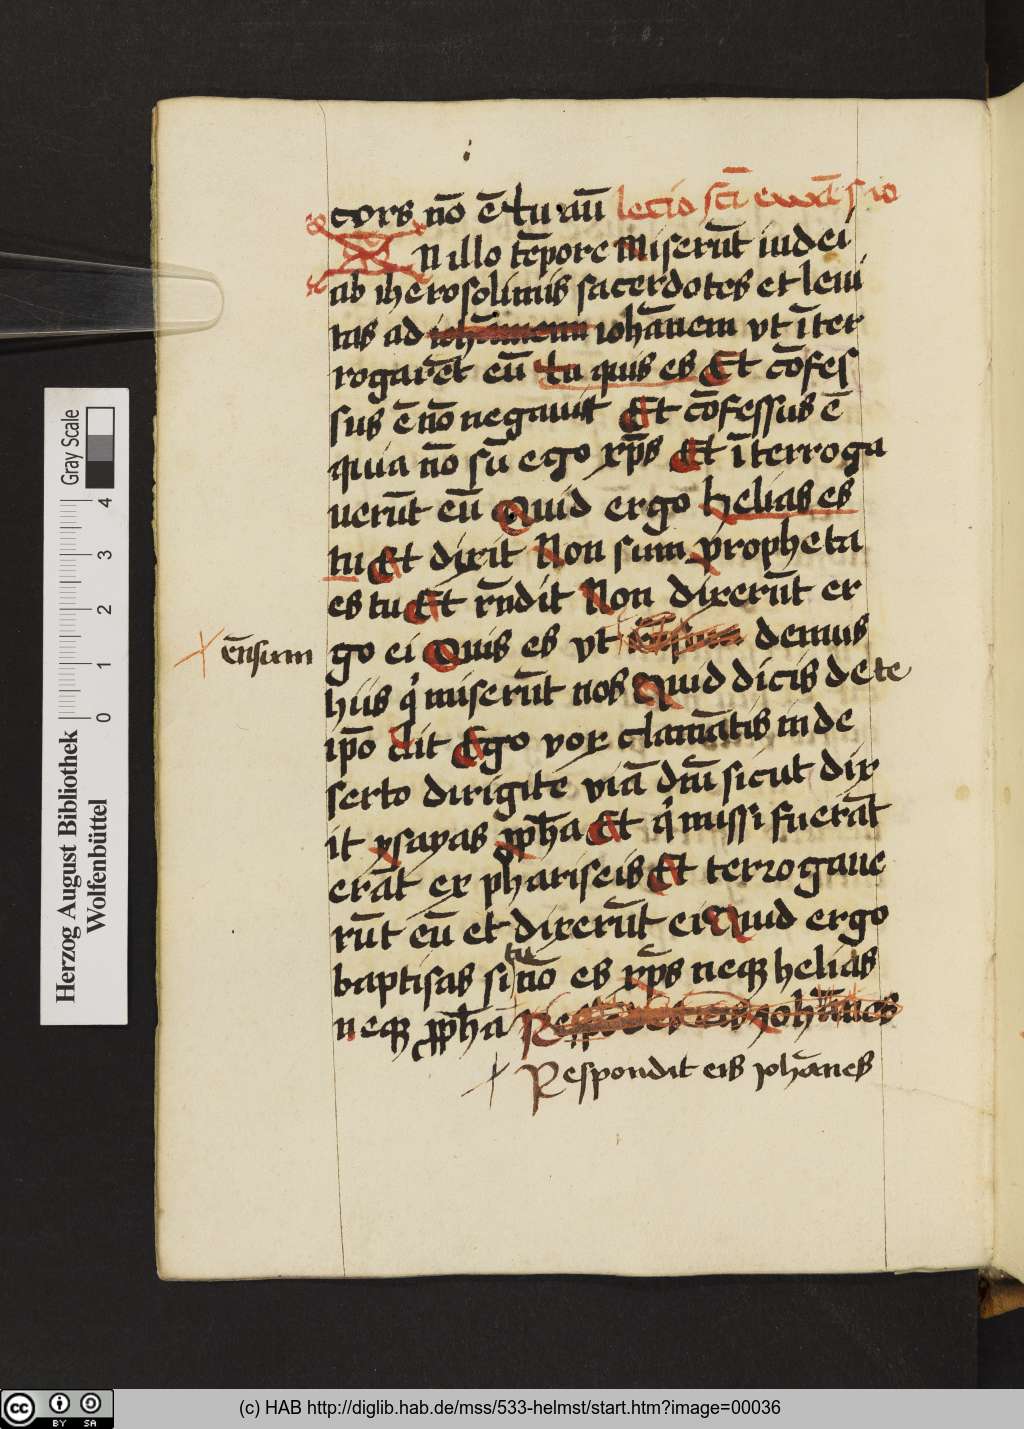 cors nō ē tu aū lecio scī ewā s io
N illo tēpore Miserūt iudei
ab iherosolimis sacerdotes et leui
tas ad iohānem iohānem vt īter
rogarēt eū tu quis es Et cōfes
sus ē nō negauit Et cōfessus ē
quia nō sū ego xp̄s Et īterroga
uerūt eū Quid ergo helias es
tu Et dixit Non sum propheta
es tu Et rn̄dit Non dixerūt er
go ei Quis es vt demus
rn̄sum
hiis q miserūt nos Quid dicis de te
ip̄o Ait Ego vox clamātis in de
serto dirigite viā dn̄i sicut dix
it ysayas pp̄ha Et q missi fuerāt
erāt ex phariseis Et terrogaue
rūt eū et dixerūt ei Quid ergo
baptisas si tu nō es xp̄s neq helias
neq pp̄ha Respondit eis Johānes
Respondit eis johānes
Gray Scale
0 1 2 3 4
Herzog August Bibliothek
Wolfenbüttel
cc BY SA
(c) HAB http://diglib.hab.de/mss/533-helmst/start.htm?image=00036